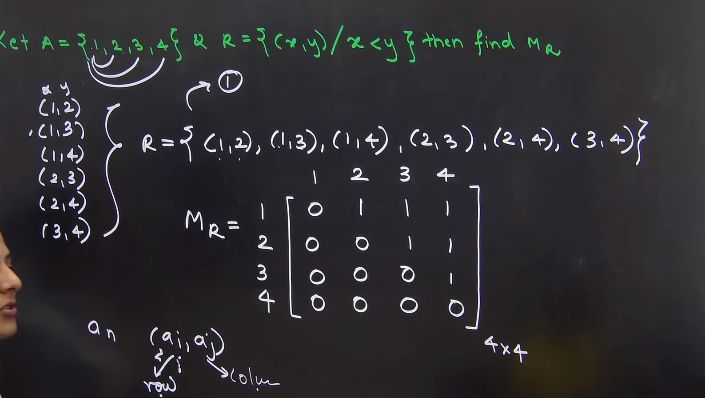 Let A = {1,2,3,4} & R = {(x,y)/x<y} then find M_R
x y
(1,2)
(1,3)
(1,4)
(2,3)
(2,4)
(3,4)
①
R = { (1,2), (1,3), (1,4), (2,3), (2,4), (3,4)}
1 2 3 4
M_R =
1 [ 0 1 1 1
2 0 0 1 1
3 0 0 0 1
4 0 0 0 0 ]
4x4
(ai, aj)
row